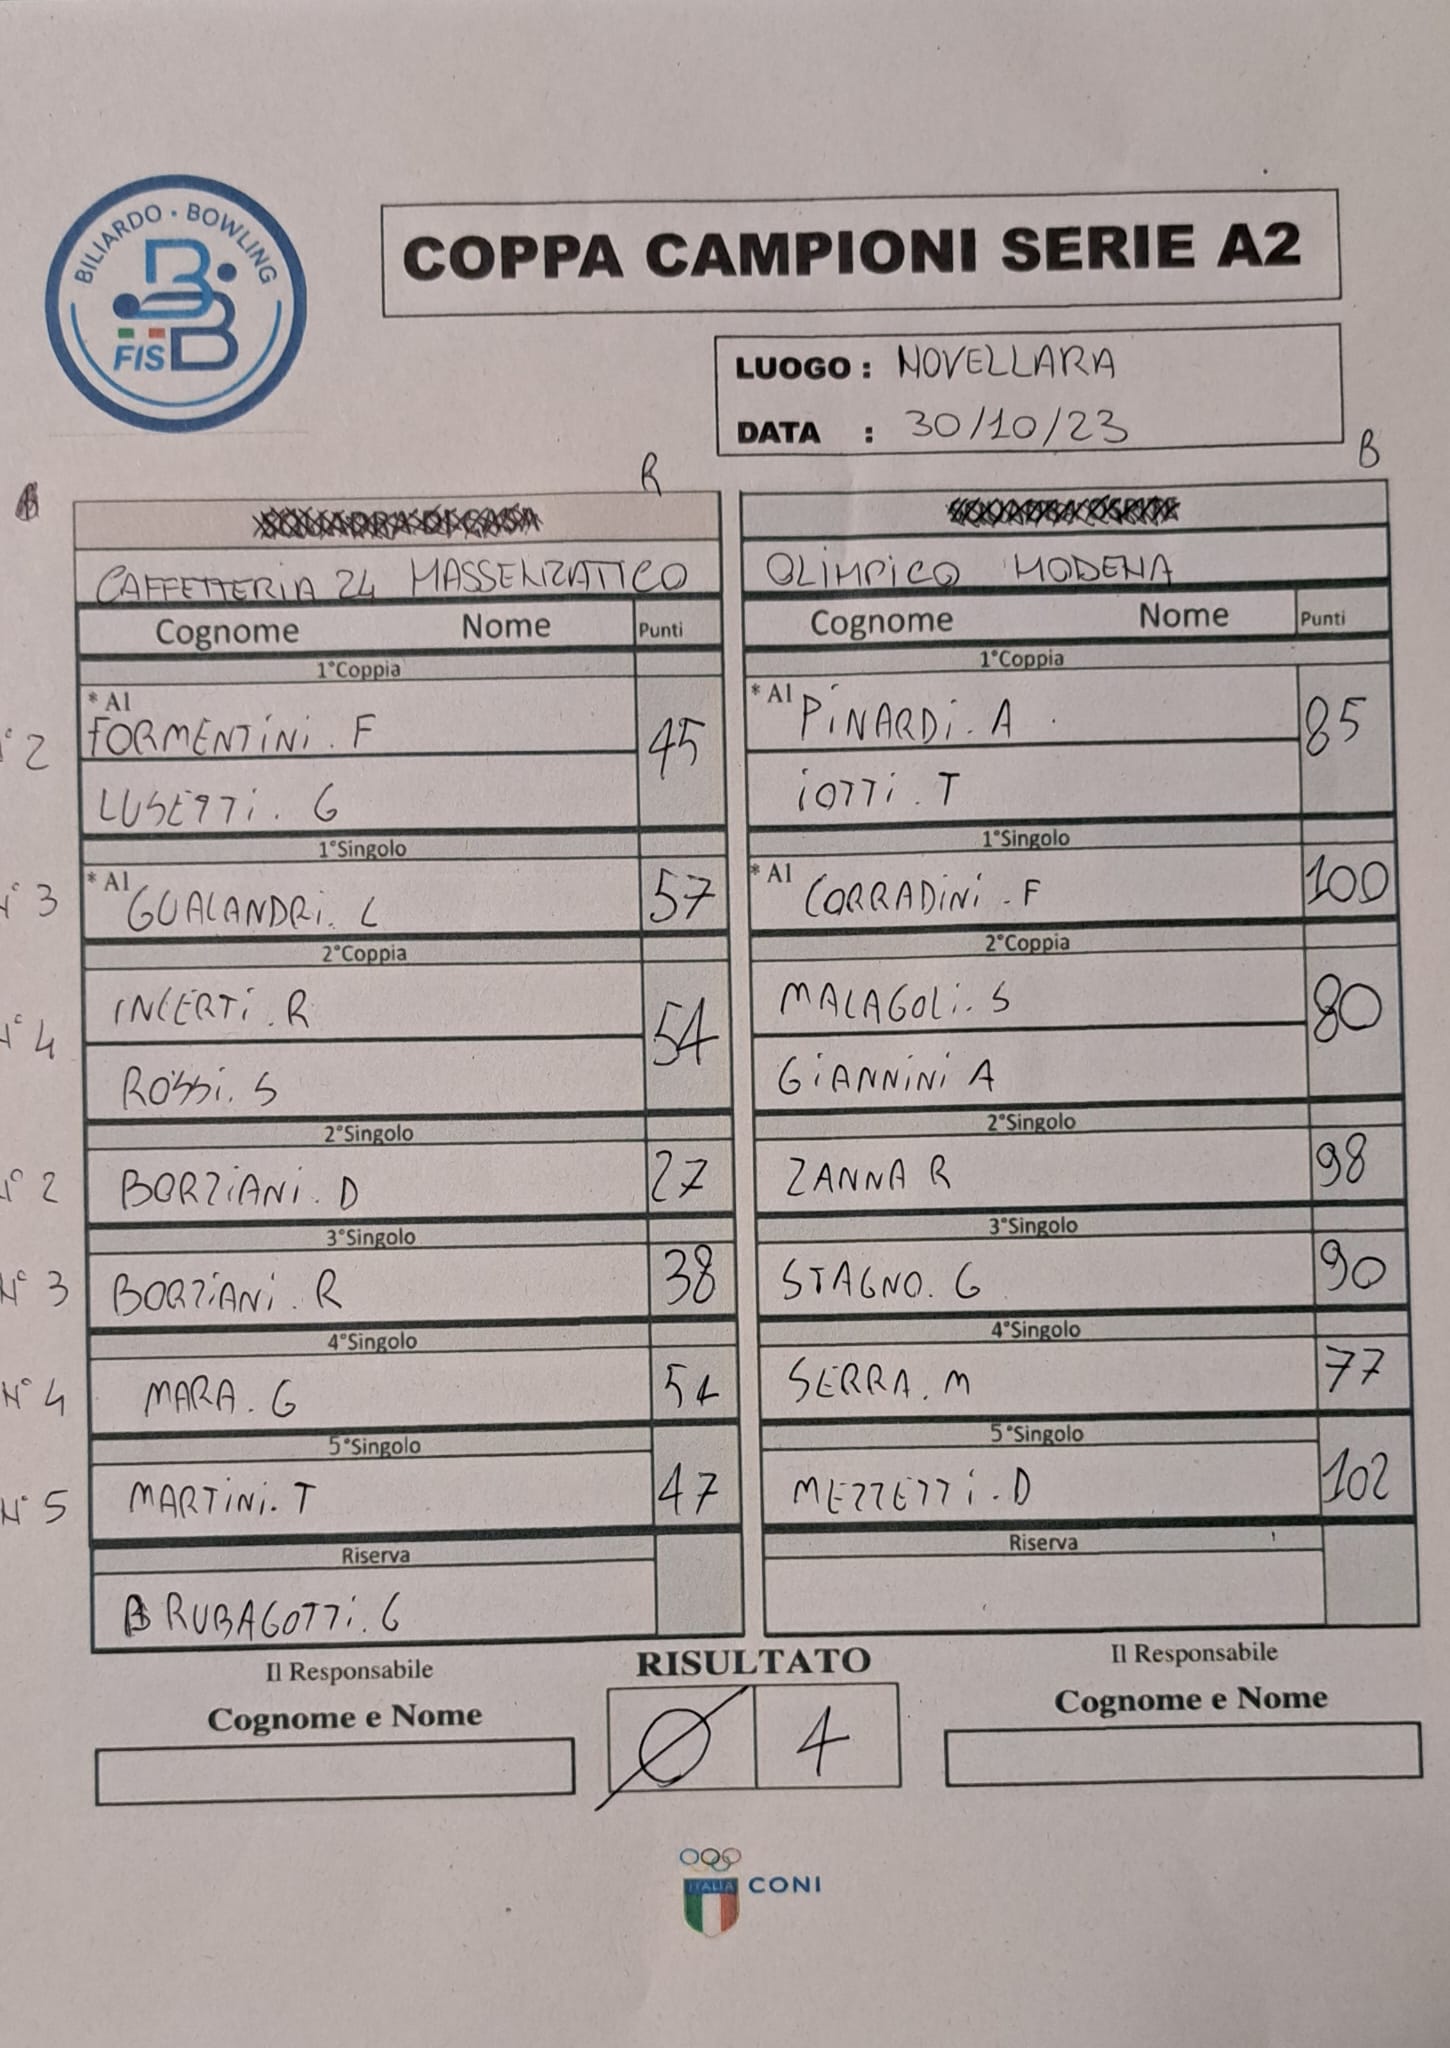 BILIARDO • BOWLING
FISBB
COPPA CAMPIONI SERIE A2
LUOGO : NOVELLARA
DATA : 30/10/23
R
B
CAFFETTERIA 24 MASSENZATICO
OLIMPICO MODENA
Cognome Nome Punti
Cognome Nome Punti
1°Coppia
1°Coppia
N° 2 * A1 FORMENTINI. F 45
LUSETTI. G
* A1 PINARDI. A 85
IOTTI. T
1°Singolo
1°Singolo
N° 3 * A1 GUALANDRI. L 57
* A1 CORRADINI. F 100
2°Coppia
2°Coppia
N° 4 INCERTI. R 54
ROSSI. S
MALAGOLI. S 80
GIANNINI A
2°Singolo
2°Singolo
N° 2 BORZIANI. D 27
ZANNA R 98
3°Singolo
3°Singolo
N° 3 BORZIANI. R 38
STAGNO. G 90
4°Singolo
4°Singolo
N° 4 MARA. G
SERRA. M 77
5°Singolo
5°Singolo
N° 5 MARTINI. T 47
MEZZETTI. D 102
Riserva
Riserva
BRUBAGOTTI. G
Il Responsabile
RISULTATO
Il Responsabile
Cognome e Nome
0 4
Cognome e Nome
ITALIA
CONI